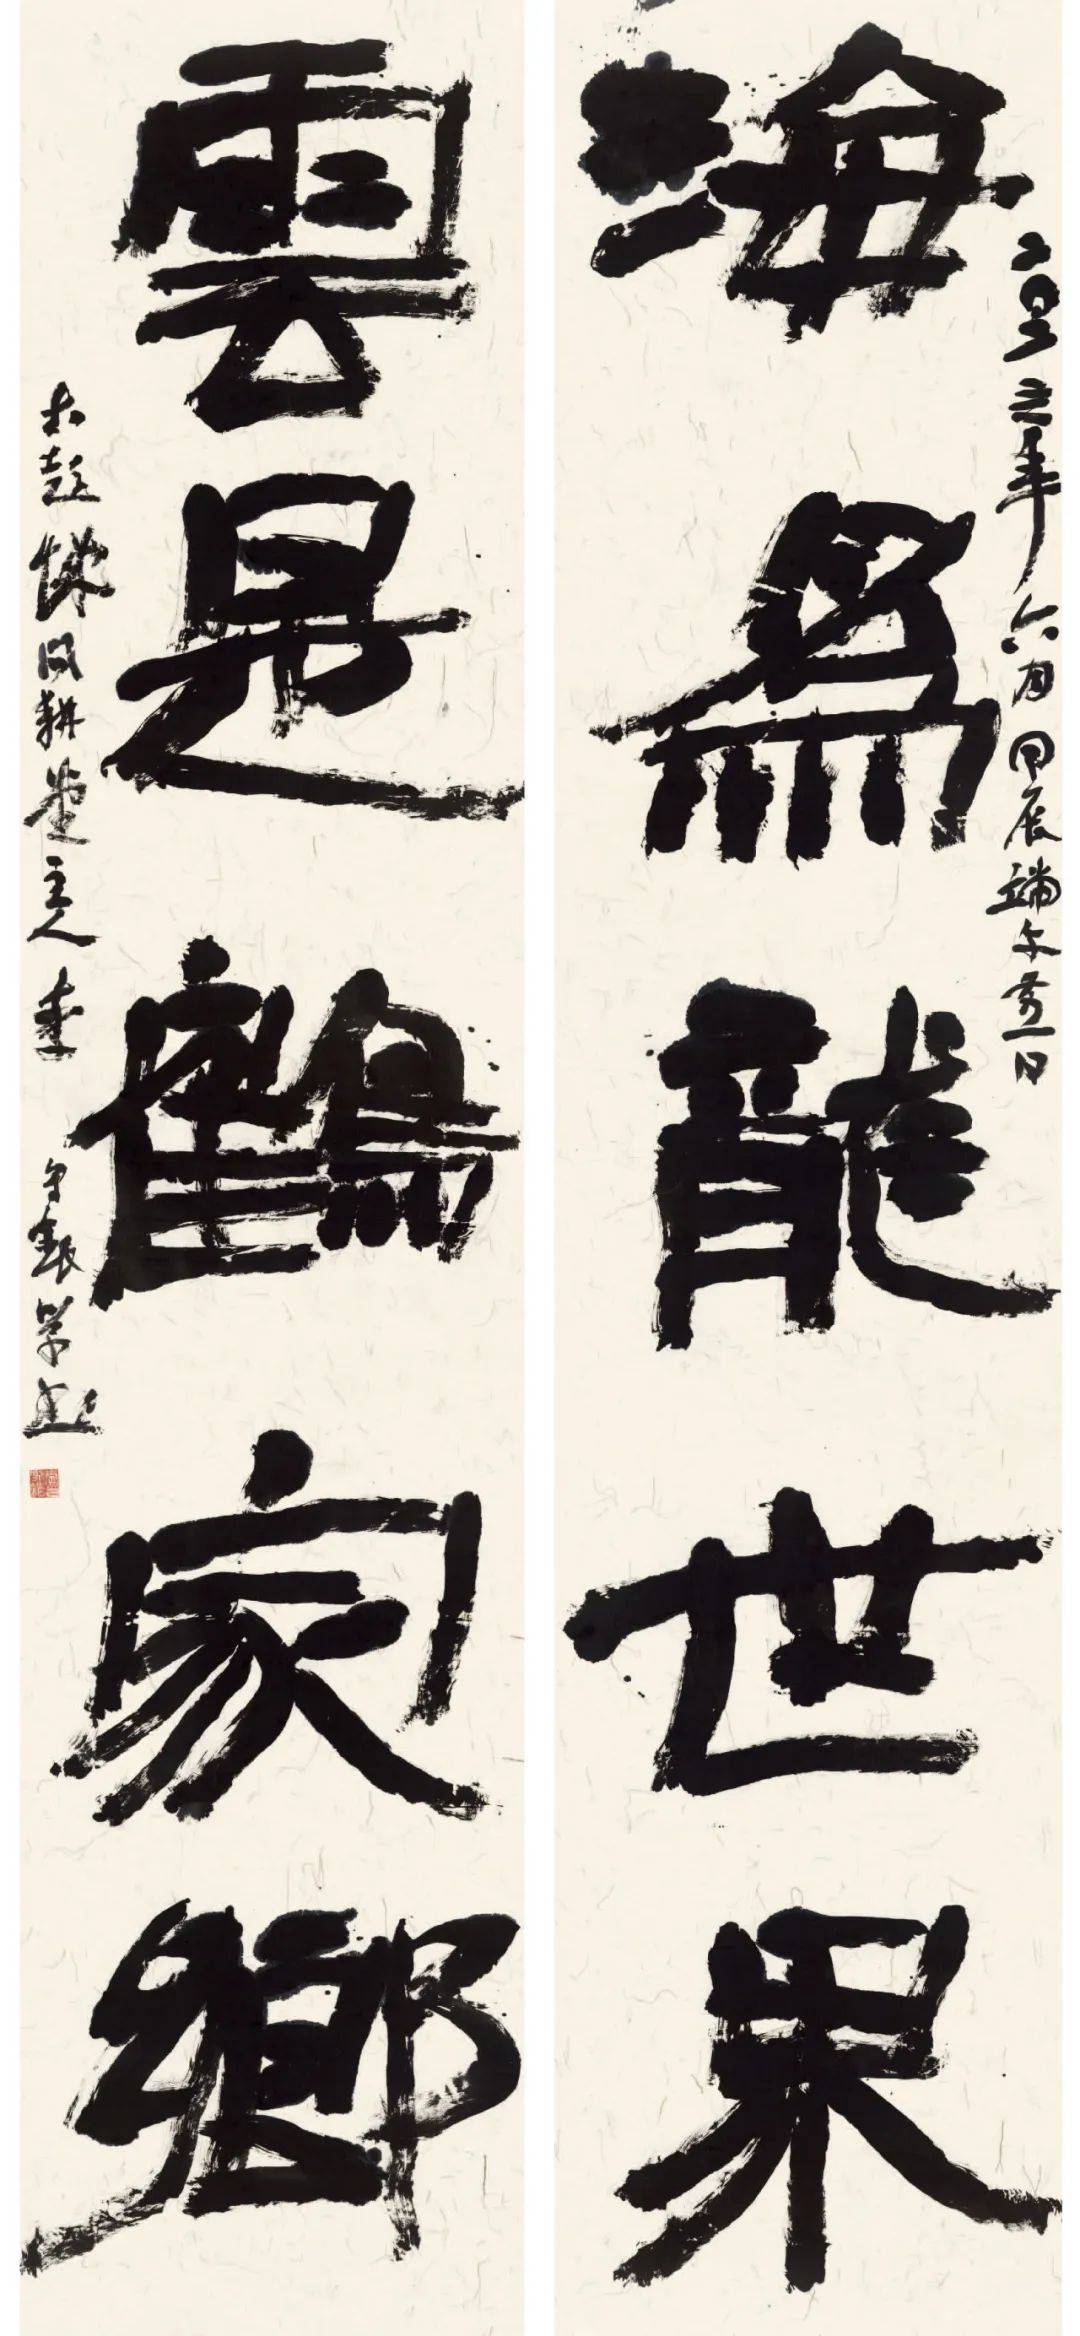 海為龍世界
雲是鶴家鄉
二〇二四年六月甲辰端午前一日
耕堂主人李守銀学書